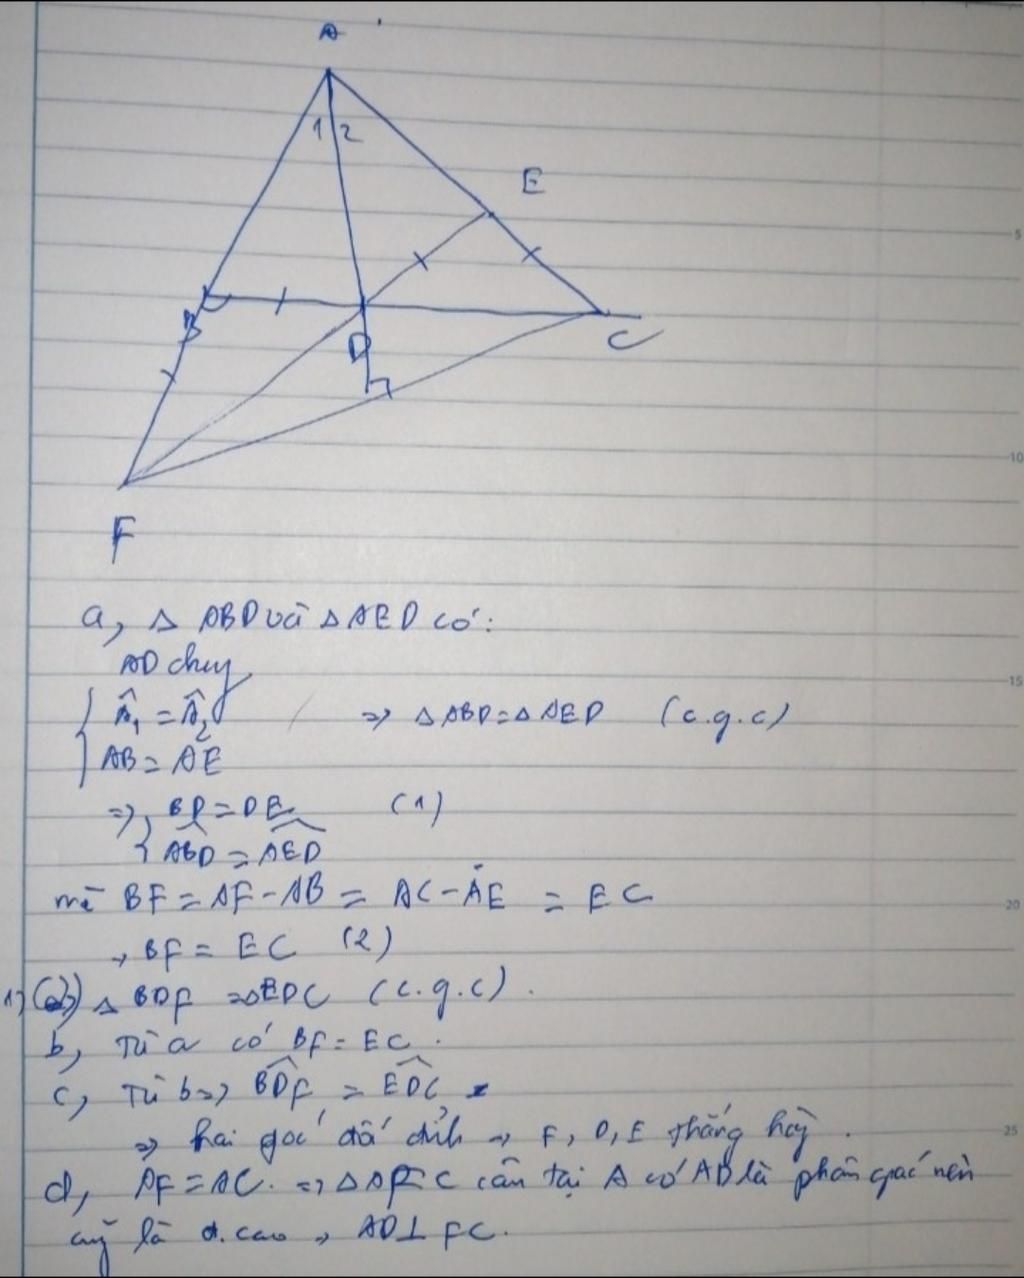 A
1 2
E
B
D
C
F
5
10
15
20
25
a, Δ ABD và Δ AED có:
AD chung
Â₁ = Â₂ => Δ ABD = Δ AED (c.g.c)
AB = AE
=> BD = DE (1)
ABD = AED
mà BF = AF - AB = AC - AE = EC
→ BF = EC (2)
Δ BDF = Δ EDC (c.g.c).
b, Từ a có BF = EC.
c, Từ b => BDF = EDC
=> hai góc đối đỉnh → F, D, E thẳng hàng.
d, AF = AC. => Δ AFC cân tại A có AD là phân giác nên
cũng là đ. cao → AD ⊥ FC.